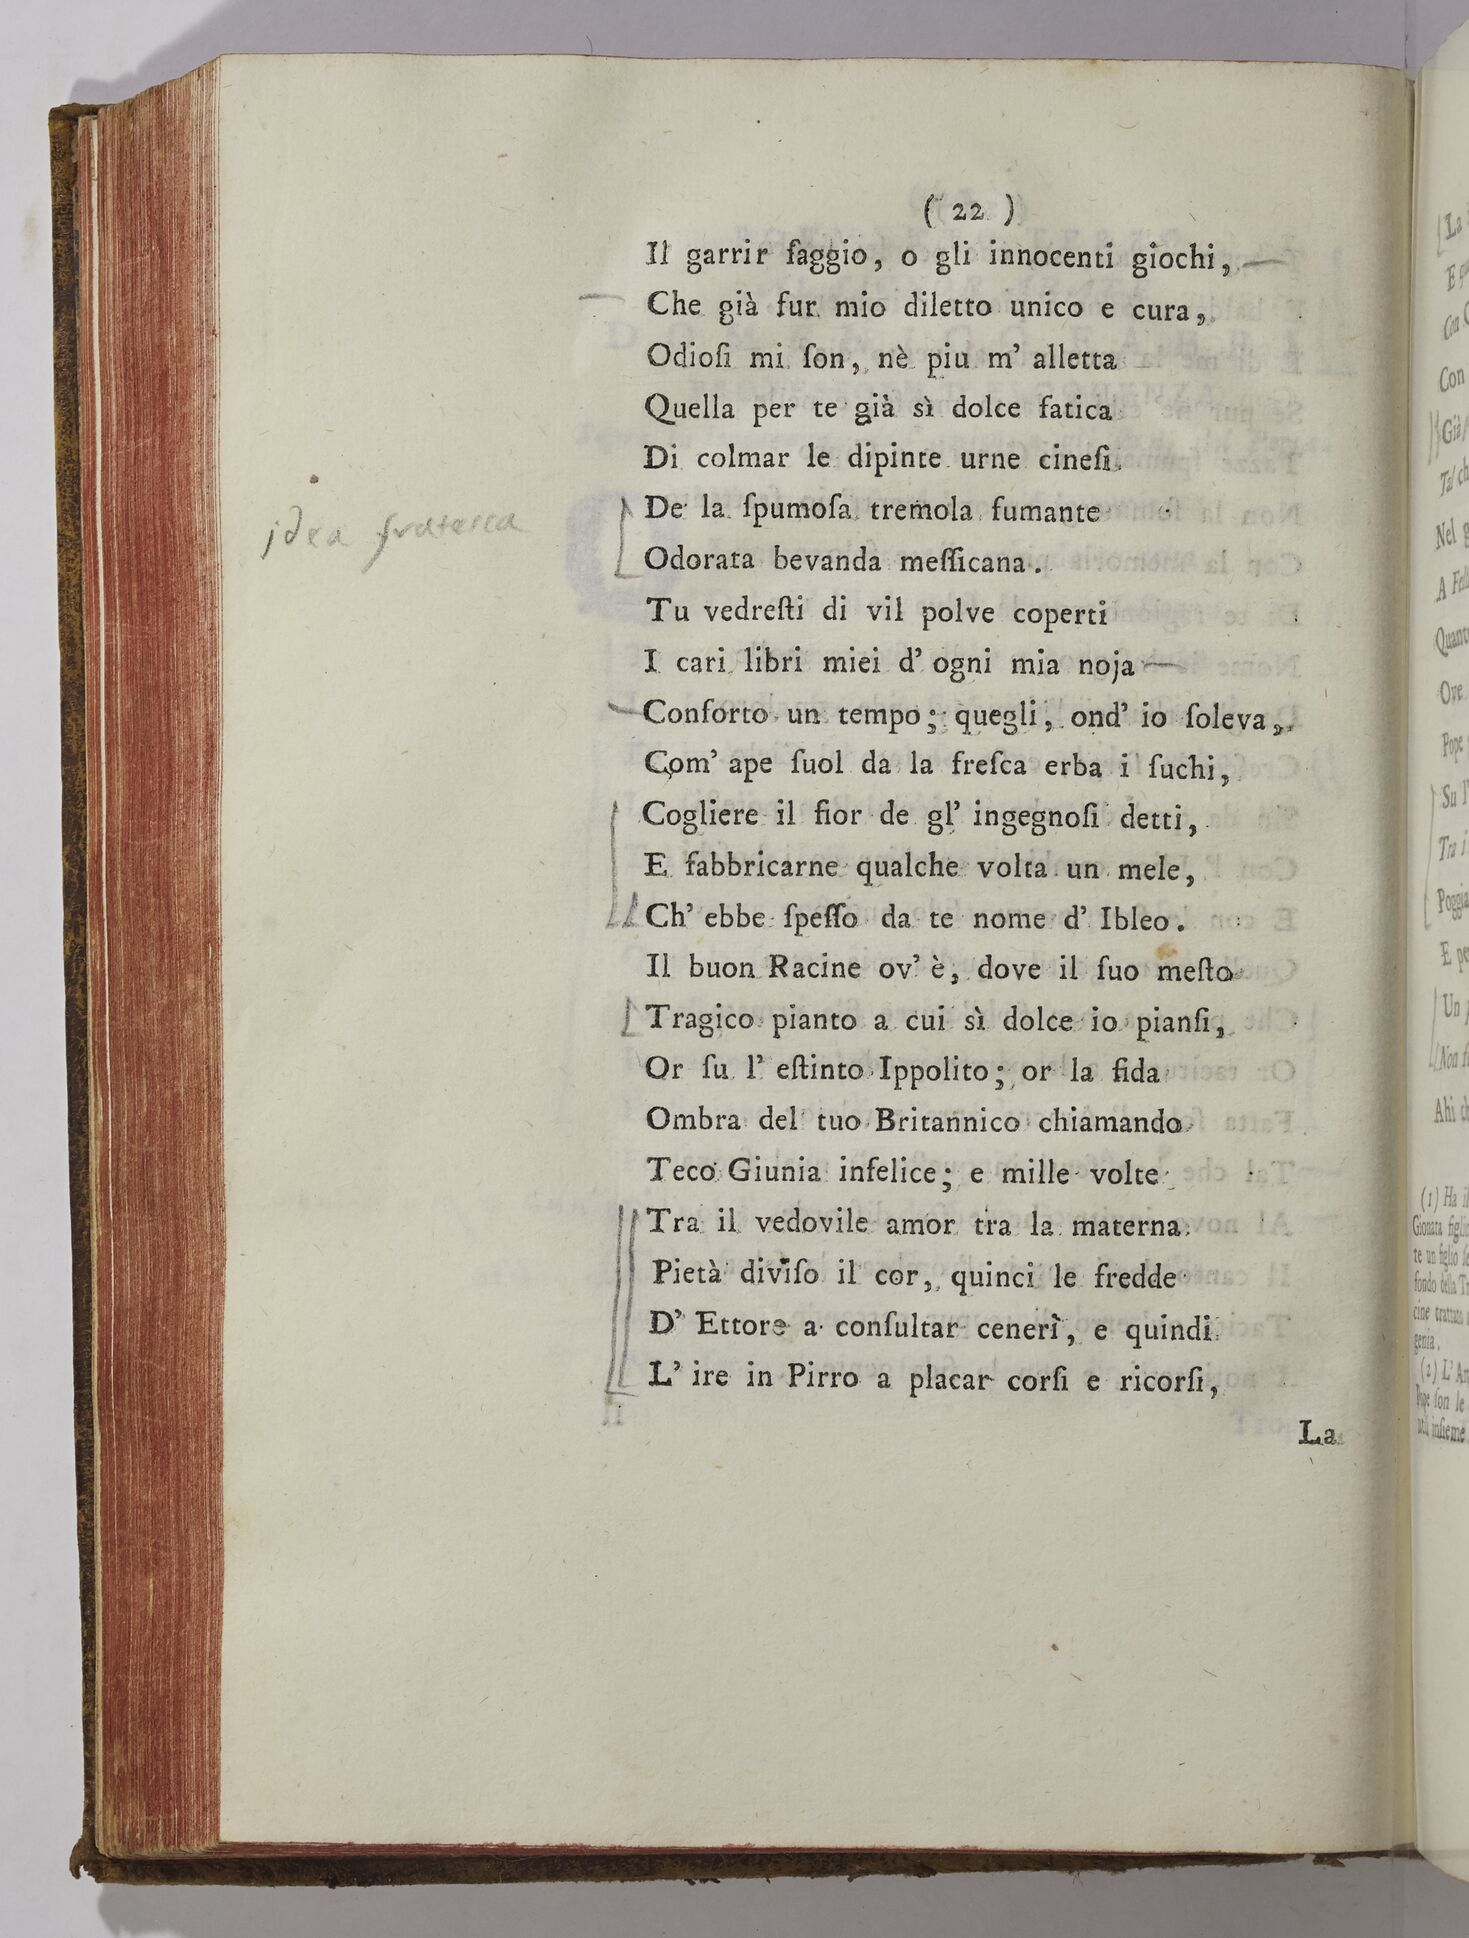 ( 22 )
Il garrir ſaggio, o gli innocenti giochi,
Che già fur mio diletto unico e cura,
Odioſi mi ſon, nè piu m' alletta
Quella per te già sì dolce fatica
Di colmar le dipinte urne cineſi
De la ſpumoſa tremola fumante
idea fratesca
Odorata bevanda meſſicana.
Tu vedreſti di vil polve coperti
I cari libri miei d' ogni mia noja
Conforto un tempo; quegli, ond' io ſoleva,
Com' ape ſuol da la freſca erba i ſuchi,
Cogliere il fior de gl' ingegnoſi detti,
E fabbricarne qualche volta un mele,
Ch' ebbe ſpeſſo da te nome d' Ibleo.
Il buon Racine ov' è, dove il ſuo meſto
Tragico pianto a cui sì dolce io pianſi,
Or ſu l' eſtinto Ippolito; or la fida
Ombra del tuo Britannico chiamando
Teco Giunia infelice; e mille volte
Tra il vedovile amor tra la materna
Pietà diviſo il cor, quinci le fredde
D' Ettore a conſultar ceneri, e quindi
L' ire in Pirro a placar corſi e ricorſi,
La
La
Con
Con
Già
Tal ch
Nel
A
Ove
Pope
Su l'
Tra i
E pe
Un
Non
Ahi
(1) Ha il
Gionata figlio
te un figlio
fondo della
cine trattato
genia.
(2) L'
Pope ſon le
inſieme